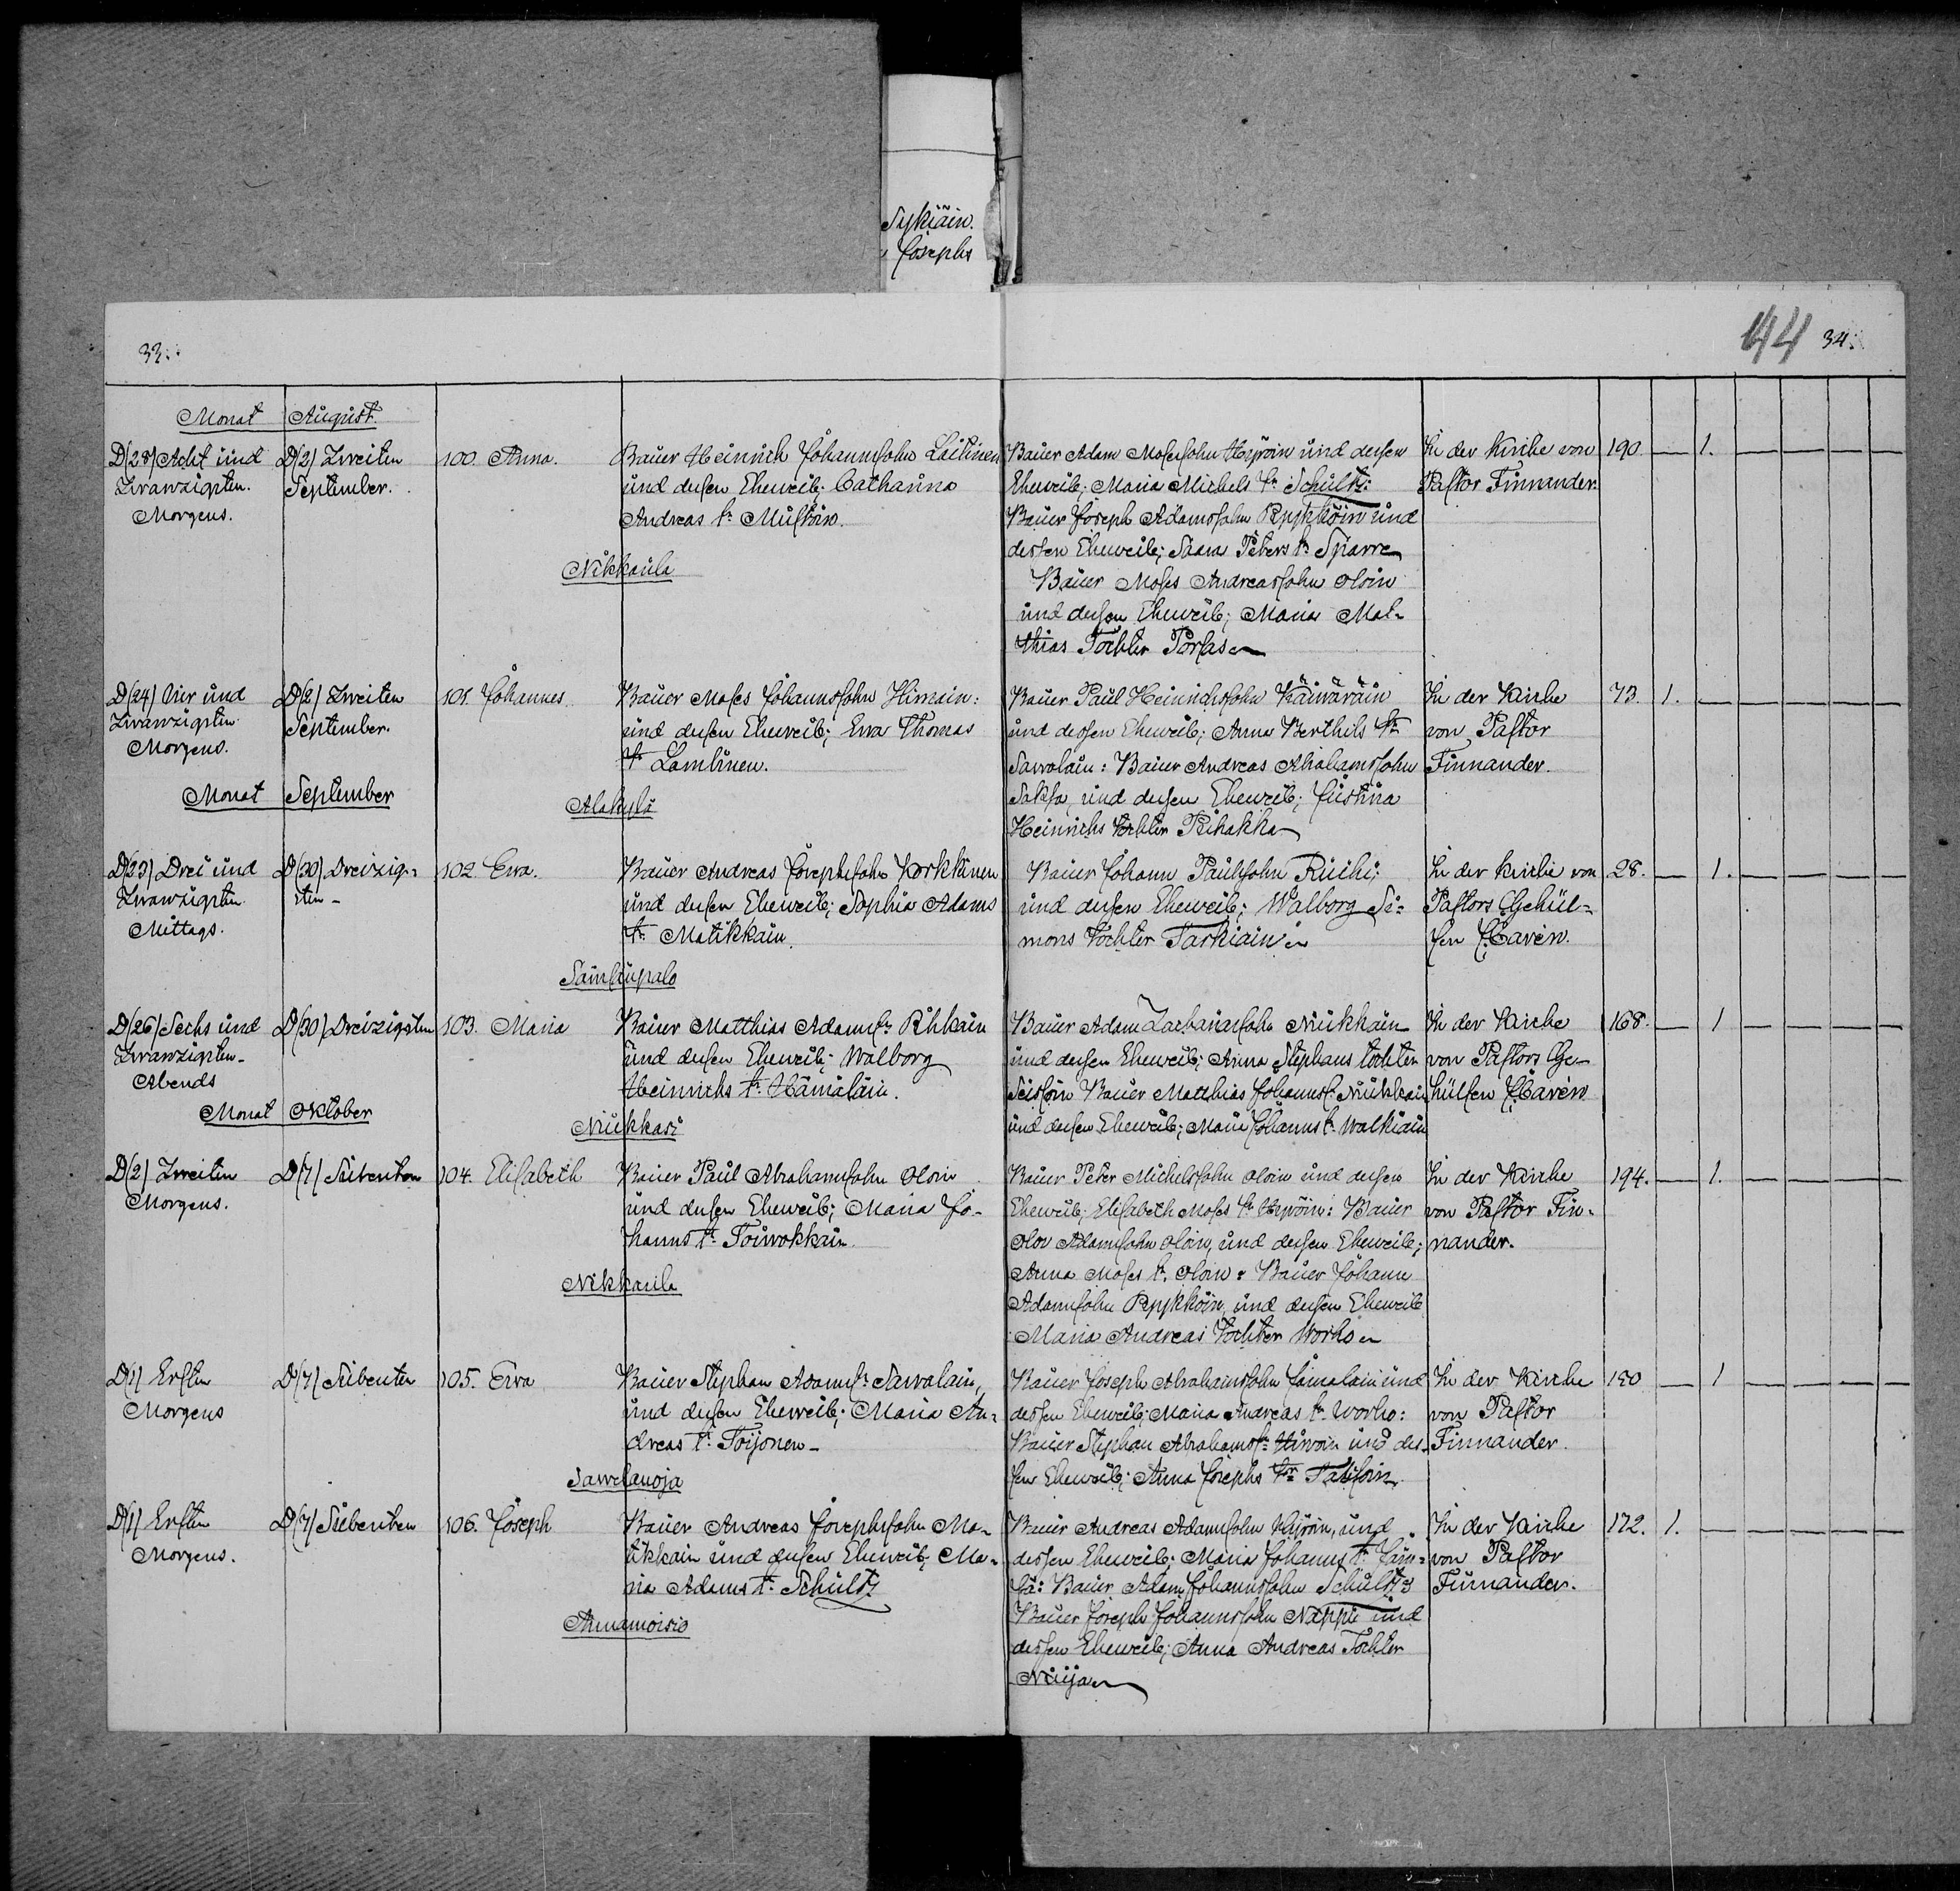 Sykiäin.
Josephs
33.
44 34.
Monat August.
D/28/ Acht und
Zwanzigsten.
Morgens.
D/2/ Zweiten
September.
100. Anna.
Bauer Heinrich Johannsohn Laitinen
und dessen Eheweib; Catharina
Andreas tr.
Nikkaula
Bauer Adam Mosessohn und dessen
Eheweib; Maria Michels tr. Schultz:
Bauer Joseph Adamssohn Pÿykköin und
dessen Eheweib; Saara Peters tr. Sparre
Bauer Moses Andreassohn Oloin
und dessen Eheweib; Maria Mat-
thias Tochter Porsas
In der Kirche von
Pastor Finnander.
190. — 1. — — — —
D/24/ Vier und
Zwanzigsten
Morgens.
D/2/ Zweiten
September.
101. Johannes.
Bauer Moses Johannssohn Himain:
und dessen Eheweib; Ewa Thomas
tr. Lamlinen.
Alakylä
Bauer Paul Heinrichssohn Käiwäräin
und dessen Eheweib; Anna Berthils tr.
Sawolain: Bauer Andreas Abrahamssohn
Saksa, und dessen Eheweib; Justina
Heinrichs tochter Pihakka
In der Kirche
von Pastor
Finnander.
73. 1. — — — — —
Monat September
D/23/ Drei und
Zwanzigsten
Mittags.
D/30/ Dreizigs-
ten -
102. Ewa.
Bauer Andreas Josephssohn Korkkinen
und dessen Eheweib; Sophia Adams
tr. Matikkain.
Bauer Johann Paulssohn Riihi;
und dessen Eheweib; Walborg Si-
mons tochter Tarkiain
In der Kirche von
Pastors Gehül-
fen Cavén.
28. — 1. — — — —
D/26/ Sechs und
Zwanzigsten -
Abends
D/30/ Dreizigsten
103. Maria
Bauer Matthias Adamss. Rihkain
und dessen Eheweib; Walborg
Heinrichs tr. Hämäläin.
Niukkasi
Bauer Adam Zachariassohn Niukkain
und dessen Eheweib; Anna Stephans tochter
Bauer Matthias Johannss. Niukkain
und dessen Eheweib; Maria Johanns t. Walkiain
In der Kirche
von Pastors Ge-
hülfen Cavén
168. — 1 — — — —
Monat Oktober
D/2/ Zweiten
Morgens.
D/7/ Siebenten
104. Elisabeth
Bauer Paul Abrahamssohn Oloin
und dessen Eheweib; Maria Jo-
hanns tr. Toiwokkain.
Nikkaula
Bauer Peter Michelssohn Oloin und dessen
Eheweib; Elisabeth Moses tr. Bauer
Olov Adamssohn Oloin, und dessen Eheweib;
Anna Moses t. Oloin: Bauer Johann
Adamssohn Pÿykköin, und dessen Eheweib
Maria Andreas tochter Worho
In der Kirche
von Pastor Fin-
nander.
194. — 1. — — — —
D/1/ Ersten
Morgens
D/7/ Siebenten
105. Ewa
Bauer Stephan Adamss. Sawalain,
und dessen Eheweib; Maria An-
dreas tr. Toijonen -
Sawelanoja
Bauer Joseph Abrahamssohn Jämäläin und
dessen Eheweib; Maria Andreas tr. Worho:
Bauer Stephan Abrahamss. und des-
sen Eheweib; Anna Josephs tr.
In der Kirche
von Pastor
Finnander.
180 — 1 — — — —
D/1/ Ersten
Morgens.
D/7/ Siebenten
106. Joseph
Bauer Andreas Josephssohn Ma-
tikkain und dessen Eheweib; Ma-
ria Adams tr. Schultz
Annamoisio
Bauer Andreas Adamssohn und
dessen Eheweib; Maria Johanns tr. Jäm-
sä: Bauer Adam Johannssohn Schultz
Bauer Joseph Johannssohn Nappu und
dessen Eheweib; Anna Andreas Tochter
Nuija
In der Kirche
von Pastor
Finnander.
172. 1. — — — — —